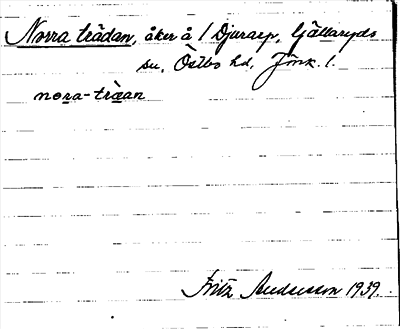 Norra trädan, åker å 1 Djuarp, Gällaryds
sn, Östbo hd, Jönk. l.
nora-träan
Fritz Andersson 1939.